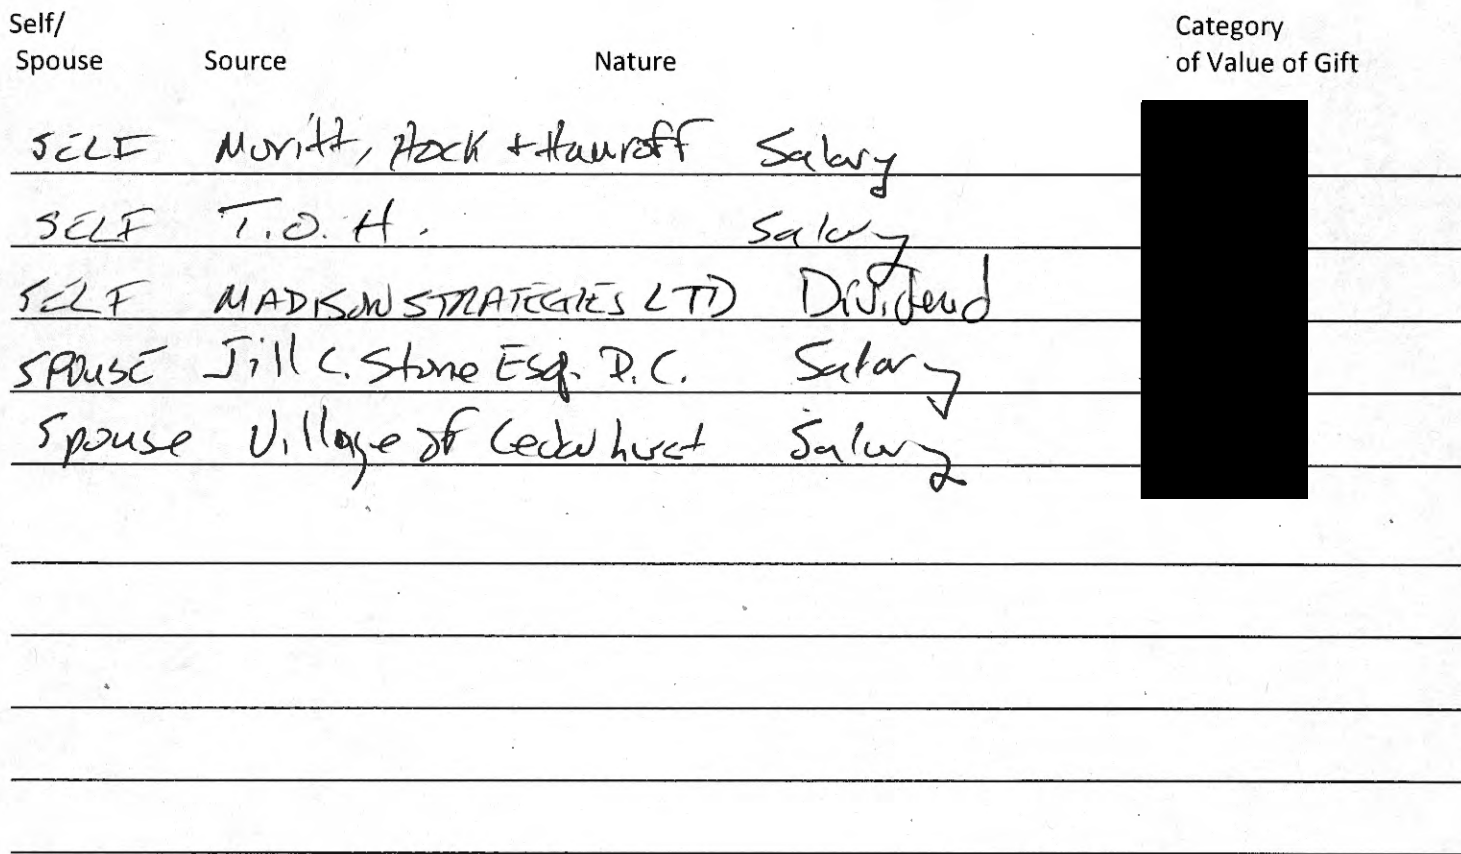 Self/ Category
Spouse Source Nature of Value of Gift
SELF Moritt, Hock + Hamroff Salary
SELF T.O.H. Salary
SELF MADISON STRATEGIES LTD Dividend
SPOUSE Jill C. Stone Esq. P.C. Salary
Spouse Village of Cedarhurst Salary